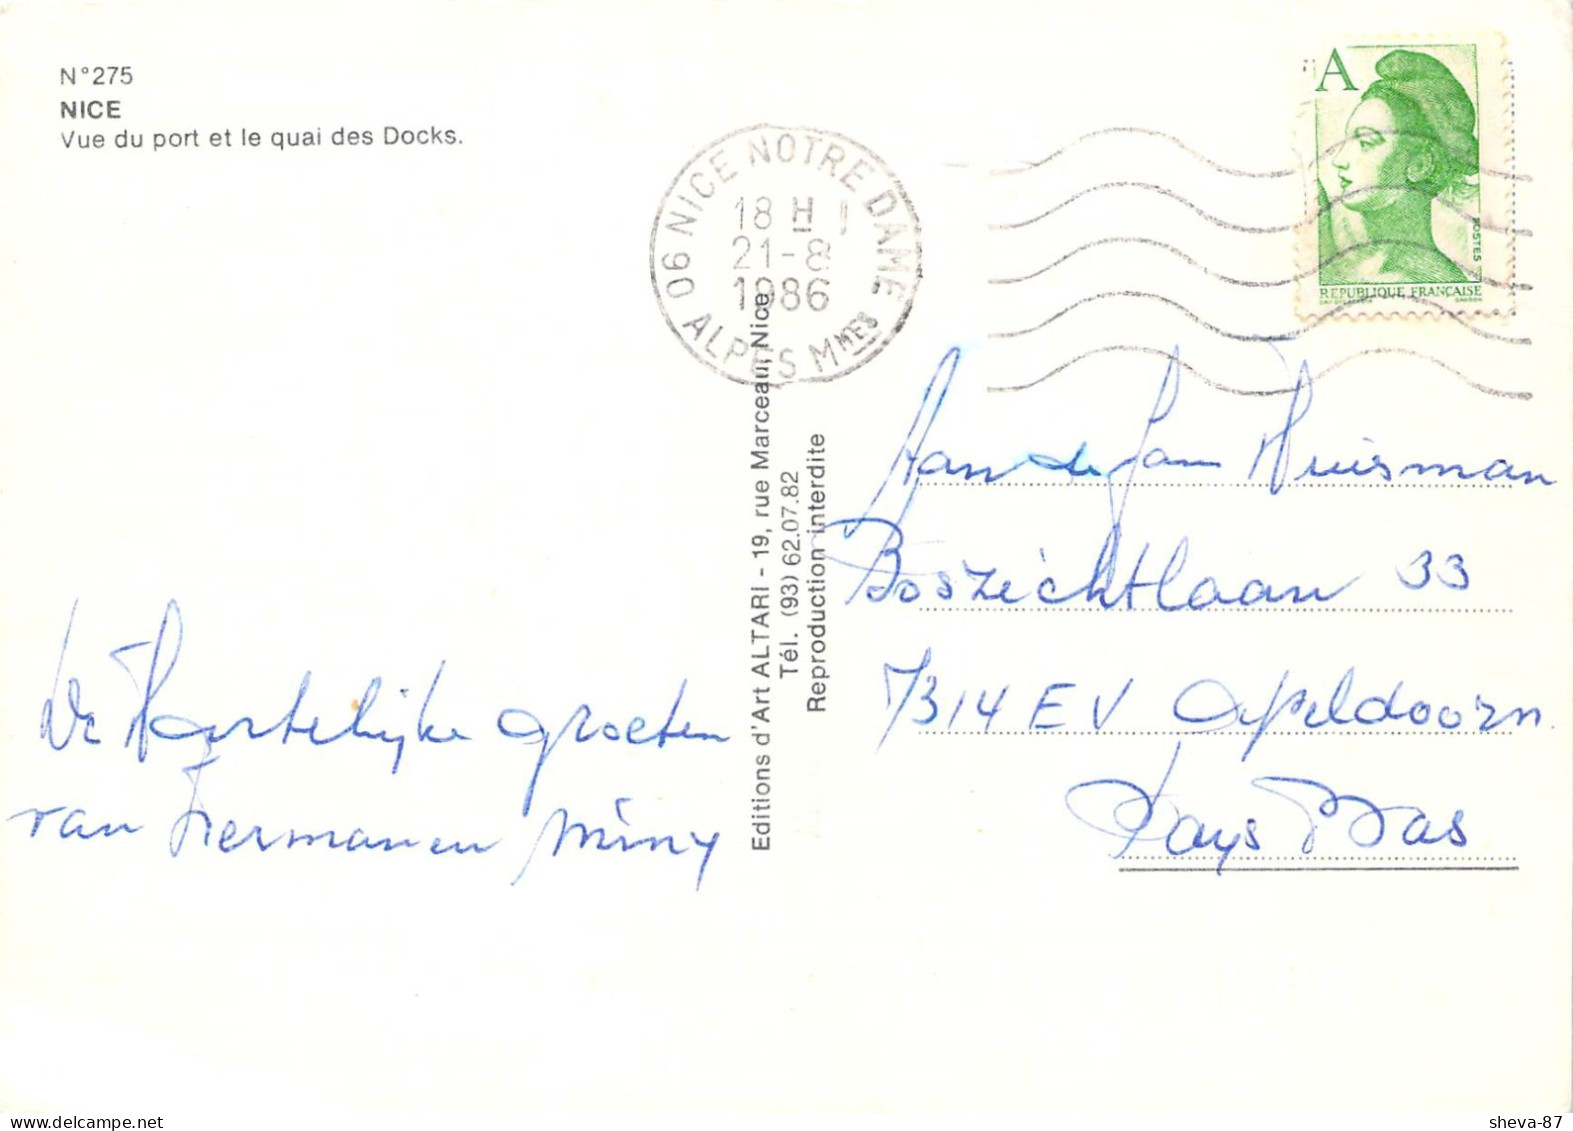 N°275
NICE
Vue du port et le quai des Docks.
06 NICE NOTRE DAME
18 H
21-8
1986
ALPES MMES
A
POSTES
REPUBLIQUE FRANÇAISE
Editions d'Art ALTARI - 19, rue Marceau, Nice
Tél. (93) 62.07.82
Reproduction interdite
De Hartelijke groeten
van Hermanen Miny
Aan de fam Huisman
Boszichtlaan 33
7314 EV Apeldoorn.
Pays Bas
sheva-87